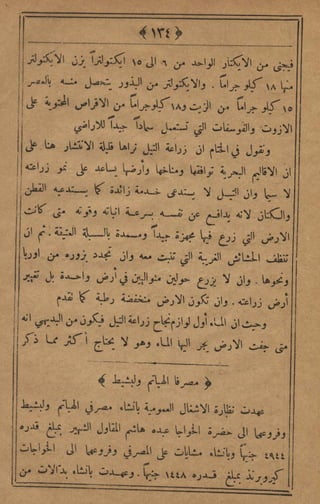 ﴿ ١٣٤ ﴾
فيجنى من الايكتار الواحد من ٦ الى ١٥ ايكتولتراً يزن الايكتولتر
منها ١٨ كيلو جراماً . والايكتولتر من البذور يتحصل منه بالعصر
١٥ كيلو جراماً من الزيت و١٨ كيلوجراماً من الاقراص المحتوية على
الازوت والفوسفات التي تستعمل سماداً جيداً للاراضي
ونقول في الختام ان زراعة التيل نراها قليلة الانتشار هنا على
ان الاقاليم البحرية توافقها ومناخها وأرضها يساعد على نمو زراعته
لا سيما وان التيل لا يستدعى خدمة زائدة كما يستدعيه القطن
والكتان لانه يدافع عن نفسه بسرعة انباته وقوته متى كانت
الارض التي زرع فيها مجهزة جيداً ومسمدة بالسبلة العتيقة . ثم ان
تنظف الحشائش الغريبة التي تنبت معه وان تجدد بزوره من اوربا
ونحوها . وان لا يزرع حولين متواليين في أرض واحدة بل تغيير
أرض زراعته . وان تكون الارض منخفضة رطبة كما تقدم
وحيث ان الماء أول لوازم نجاح زراعة التيل فيكون من البديهي انه
متى جفت الارض يجر اليها الماء وهو لا يحتاج أكثر مما ذكر
﴿ مصرفا الهياتم وبلبشيط ﴾
عهدت نظارة الاشغال العمومية بانشاء مصرفي الهياتم وبلبشيط
وفروعهما الى حضرة الخواجا عبده هاشم المقاول الشهير بمبلغ قدره
٤٩٤٤ جنيهاً وبانشاء مشايات على المصرفي وفروعهما الى الخواجات
بمبلغ قدره ١٤٤٨ جنيهاً . وعهدت بانشاء بدالات من